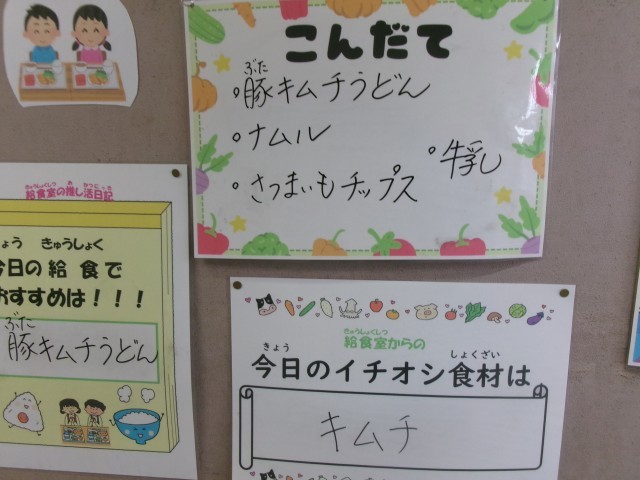 こんだて
ぶた
・豚キムチうどん
・ナムル
・牛乳
・さつまいもチップス
きゅうしょくしつ お かつにっき
給食室の推し活日記
きょう きゅうしょく
今日の給食で
おすすめは！！！
ぶた
豚キムチうどん
きゅうしょくしつ
給食室からの
きょう しょくざい
今日のイチオシ食材は
キムチ